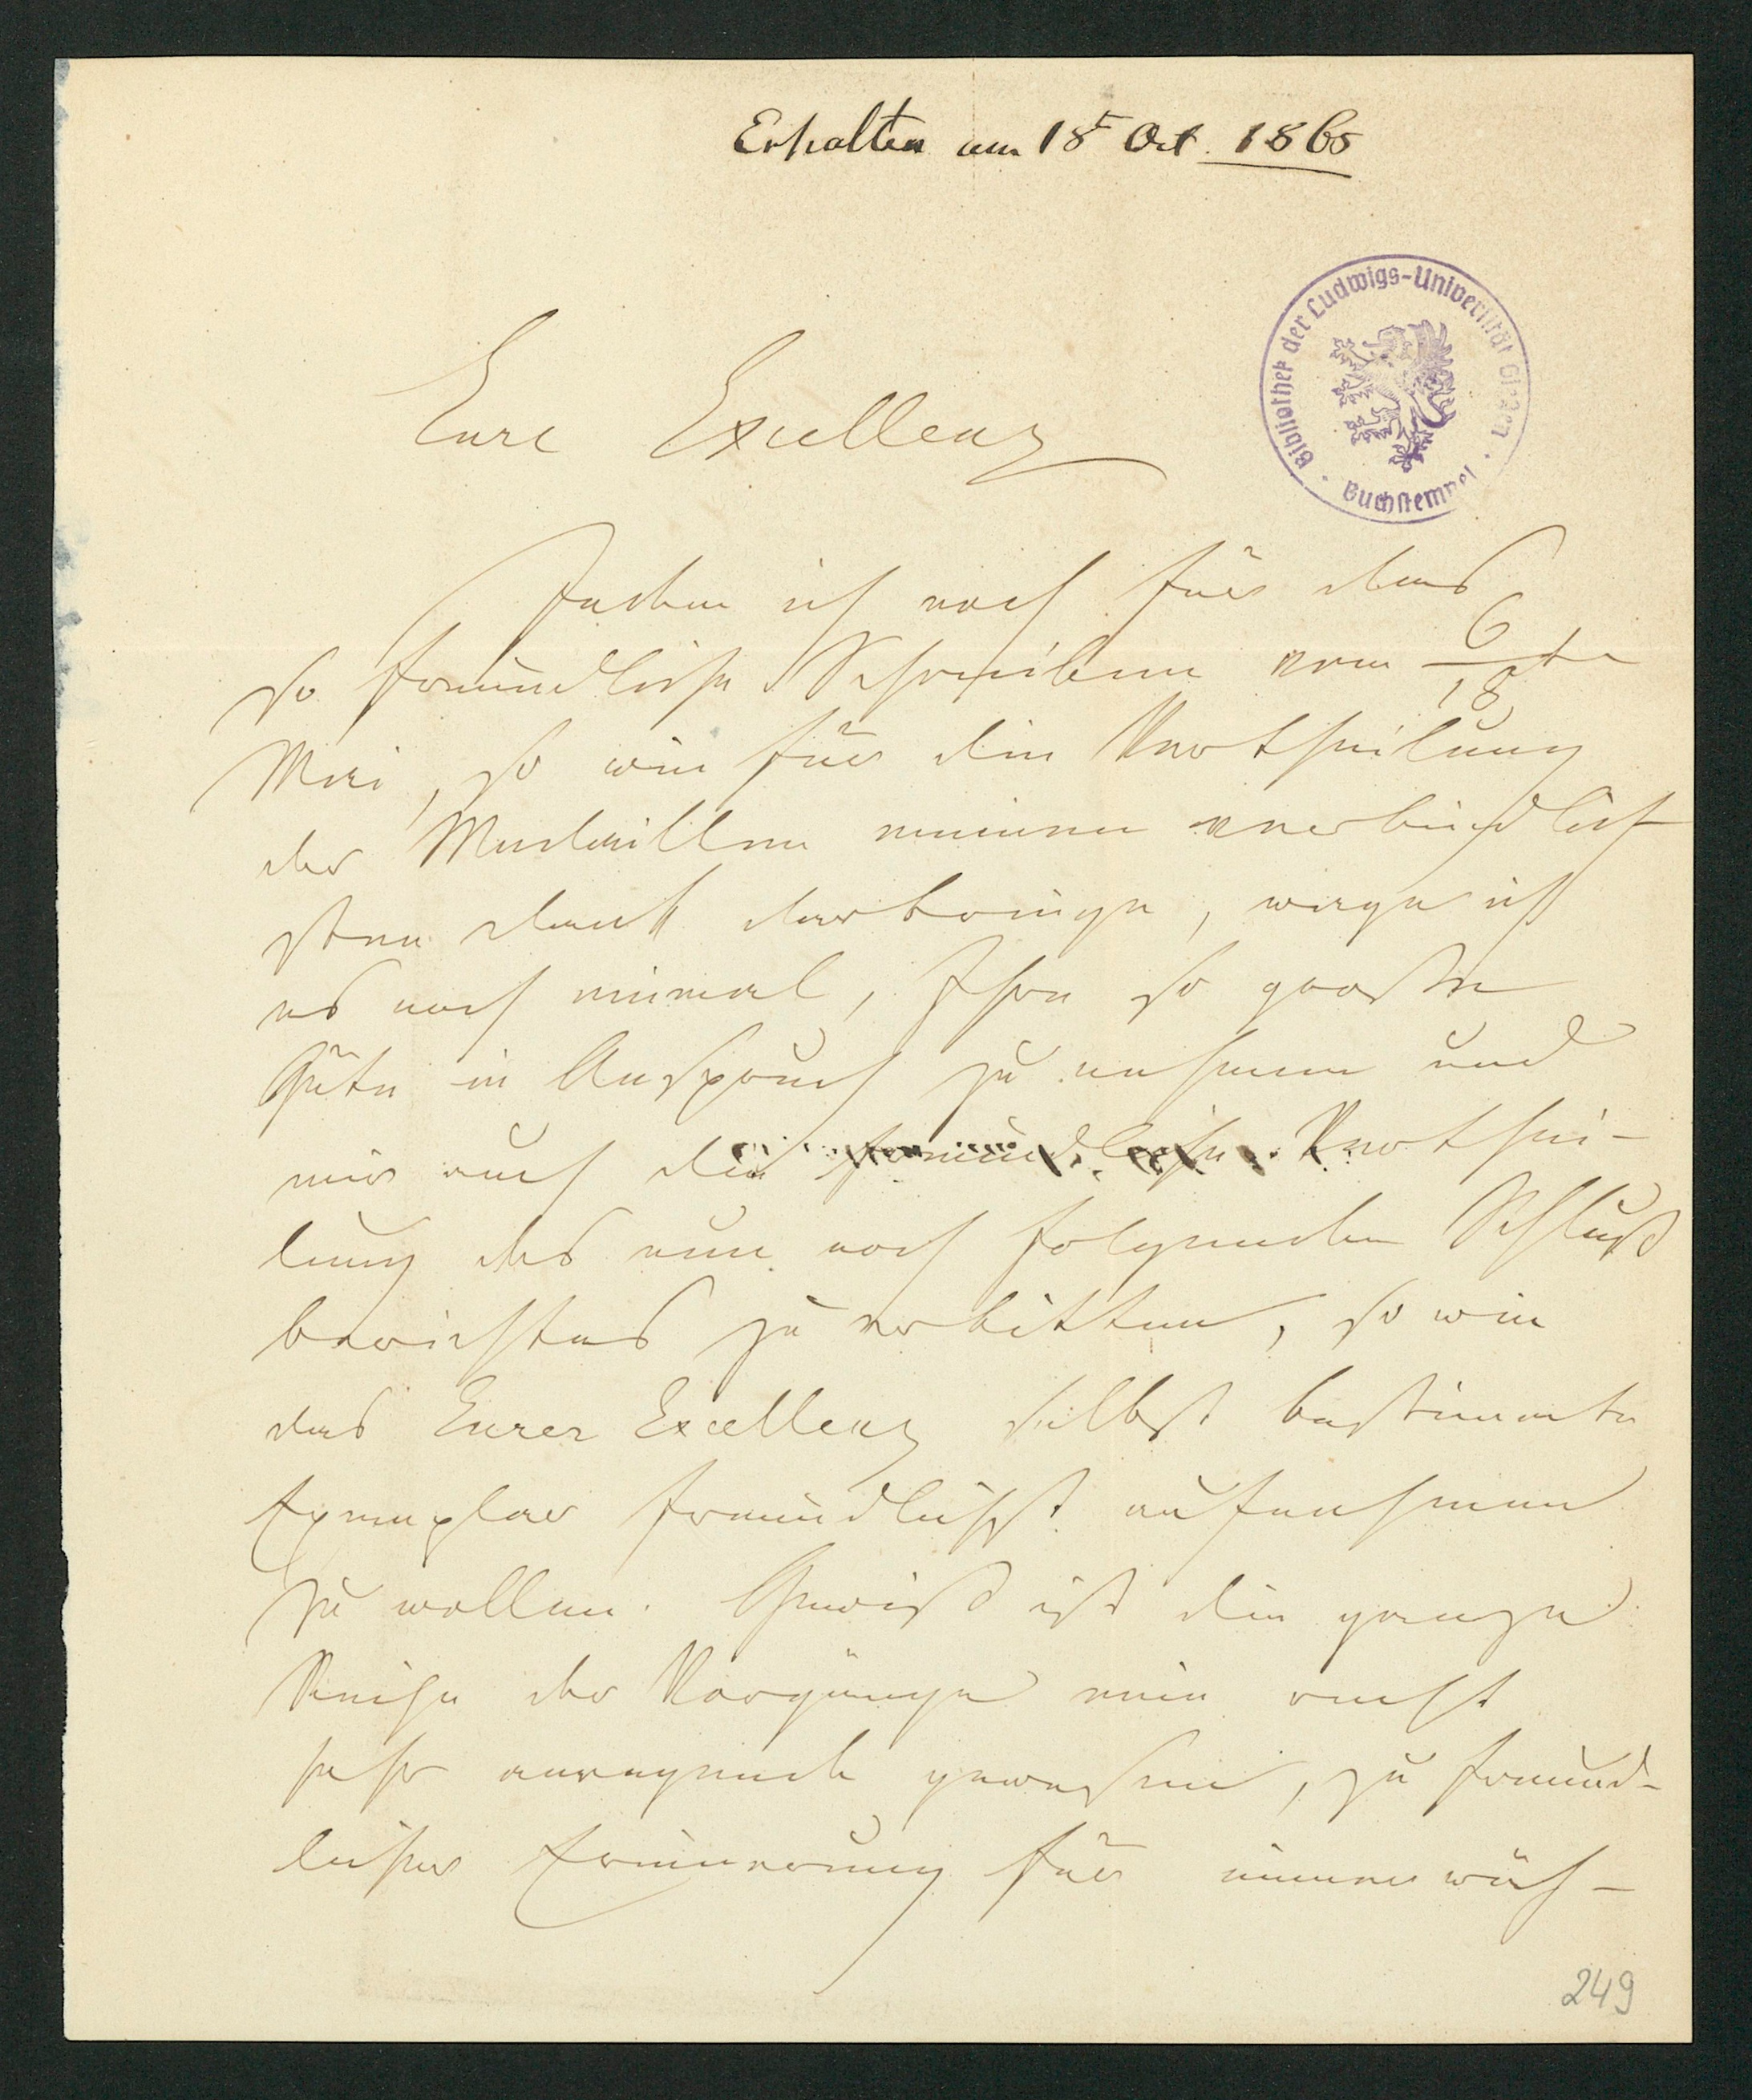 Erhalten am 18t Oct. 1865
Bibliothek der Ludwigs-Universität Gießen
Buchstempel
Eure Excellenz
Indem ich noch für das
so freundliche Schreiben vom 6/18ten
Mai, so wie für die Vertheilung
der Medaillen meinen verbindlich
sten Dank darbringe, wage ich
es noch einmal, Ihre so große
Güte in Anspruch zu nehmen und
mir auch die freundliche Verthei-
lung des nun noch folgenden Schluß
berichtes zu erbitten, so wie
das Eurer Excellenz selbst bestimmte
Exemplar freundlichst aufnehmen
zu wollen. Gewiß ist die ganze
Reihe der Vorgänge eine recht
sehr anregende gewesen, zu freund-
licher Erinnerung für immerwäh-
249